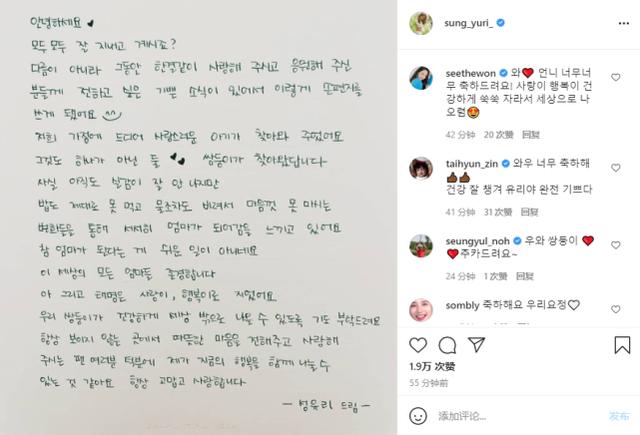 안녕하세요 ♥
모두 모두 잘 지내고 계시죠?
다름이 아니라 그동안 한결같이 사랑해 주시고 응원해 주신
분들께 전하고 싶은 기쁜 소식이 있어서 이렇게 손편지를
쓰게 됐어요 ^^
저희 가정에 드디어 사랑스러운 아기가 찾아와 주었어요
그것도 하나가 아닌 둘 ♥♥ 쌍둥이가 찾아왔답니다
사실 아직도 실감이 잘 안 나지만
밥도 제대로 못 먹고 물조차도 비려서 마음껏 못 마시는
변화들을 통해 서서히 엄마가 되어감을 느끼고 있어요
참 엄마가 된다는 게 쉬운 일이 아니네요
이 세상의 모든 엄마들 존경합니다
아 그리고 태명은 사랑이, 행복이로 지었어요
우리 쌍둥이가 건강하게 세상 밖으로 나올 수 있도록 기도 부탁드려요
항상 보이지 않는 곳에서 따뜻한 마음을 전해주고 사랑해
주시는 팬 여러분 덕분에 제가 지금의 행복을 함께 나눌 수
있는 것 같아요 항상 고맙고 사랑합니다
- 성유리 드림 -
sung_yuri_
seethewon 와❤️ 언니 너무너
무 축하드려요! 사랑이 행복이 건
강하게 쑥쑥 자라서 세상으로 나
오렴😍
42 分钟 20 次赞 回复
taihyun_zin 와우 너무 축하해
👍🏾👍🏾
건강 잘 챙겨 유리야 완전 기쁘다
41 分钟 31 次赞 回复
seungyul_noh 우와 쌍둥이 ❤️
❤️주카드려요~
24 分钟 1 次赞 回复
sombly 축하해요 우리요정♡
1.9万 次赞
55 分钟前
添加评论...
发布